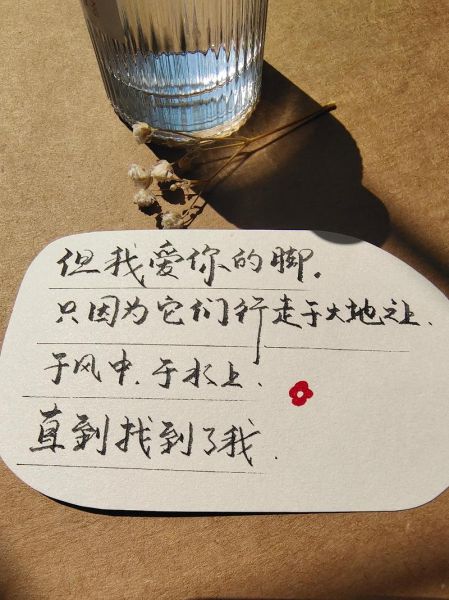 但我爱你的脚.
只因为它们行走于大地之上.
于风中.于水上.
直到找到了我.